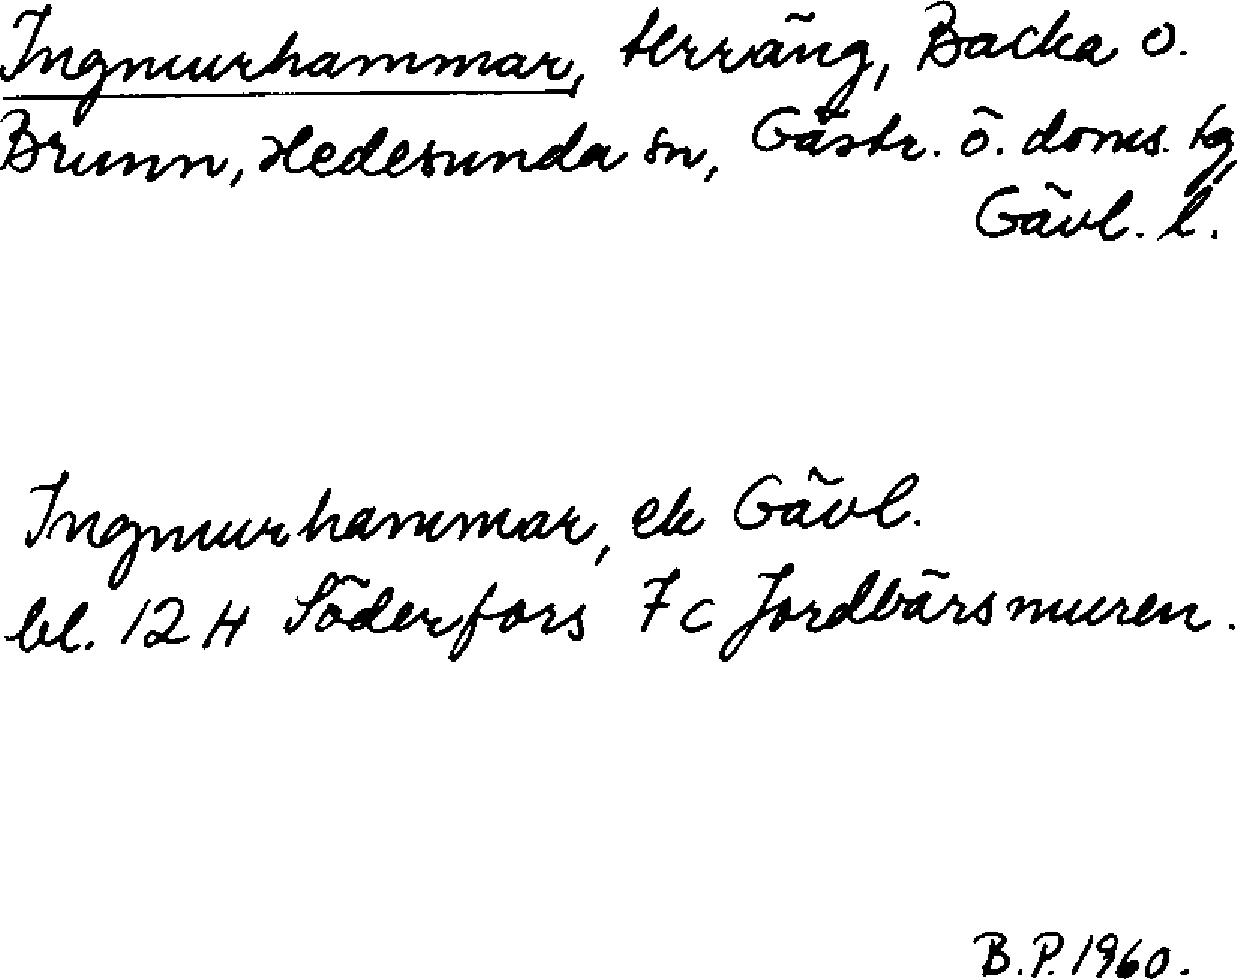 Ingmurhammar, terräng, Backa o.
Brunn, Hedesunda sn, Gästr. ö. doms. tg,
Gävl. l.
Ingmurhammar, ek Gävl.
bl. 12 H Söderfors 7 c Jordbärsmuren.
B.P. 1960.